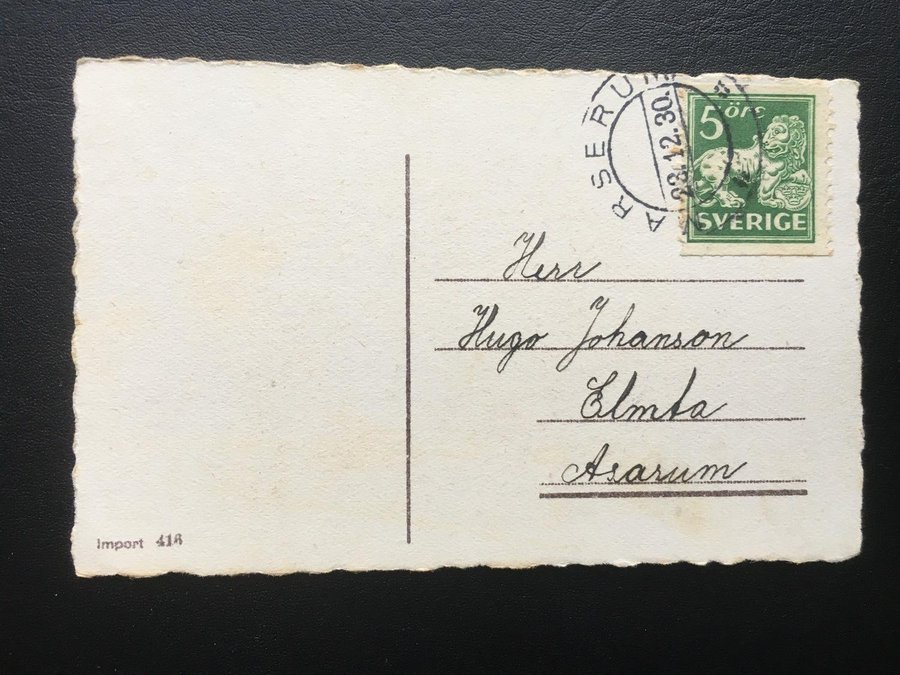 ARSERUM
23.12.30.
5 öre
SVERIGE
Herr
Hugo Johanson
Elmta
Asarum
Import 416